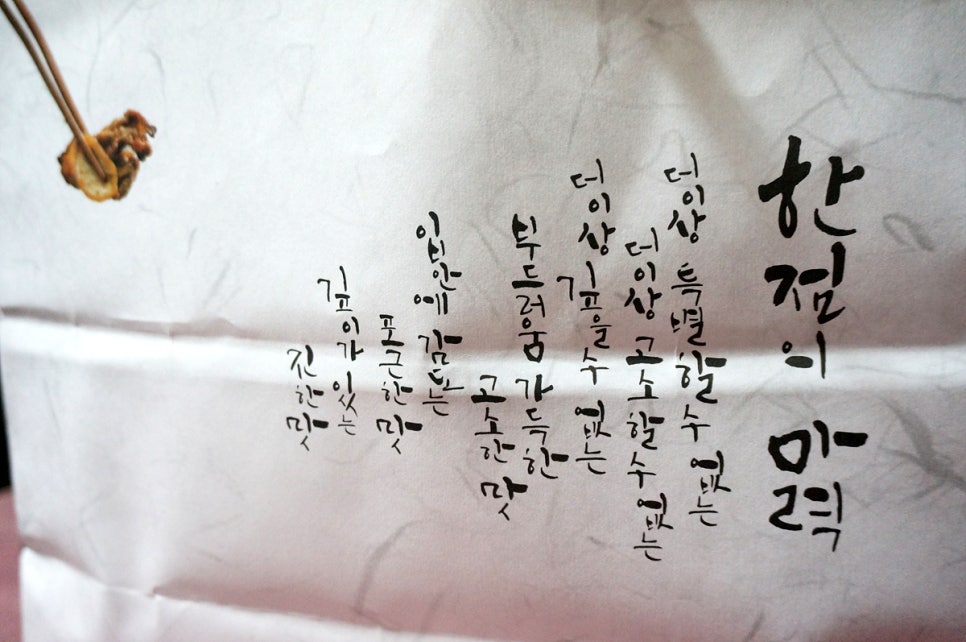 한점의 마력
더이상 특별할수 없는
더이상 고소할수 없는
더이상 깊을수 없는
부드러움 가득한
고소한 맛
입안에 감도는
포근한 맛
깊이가 있는
진한 맛